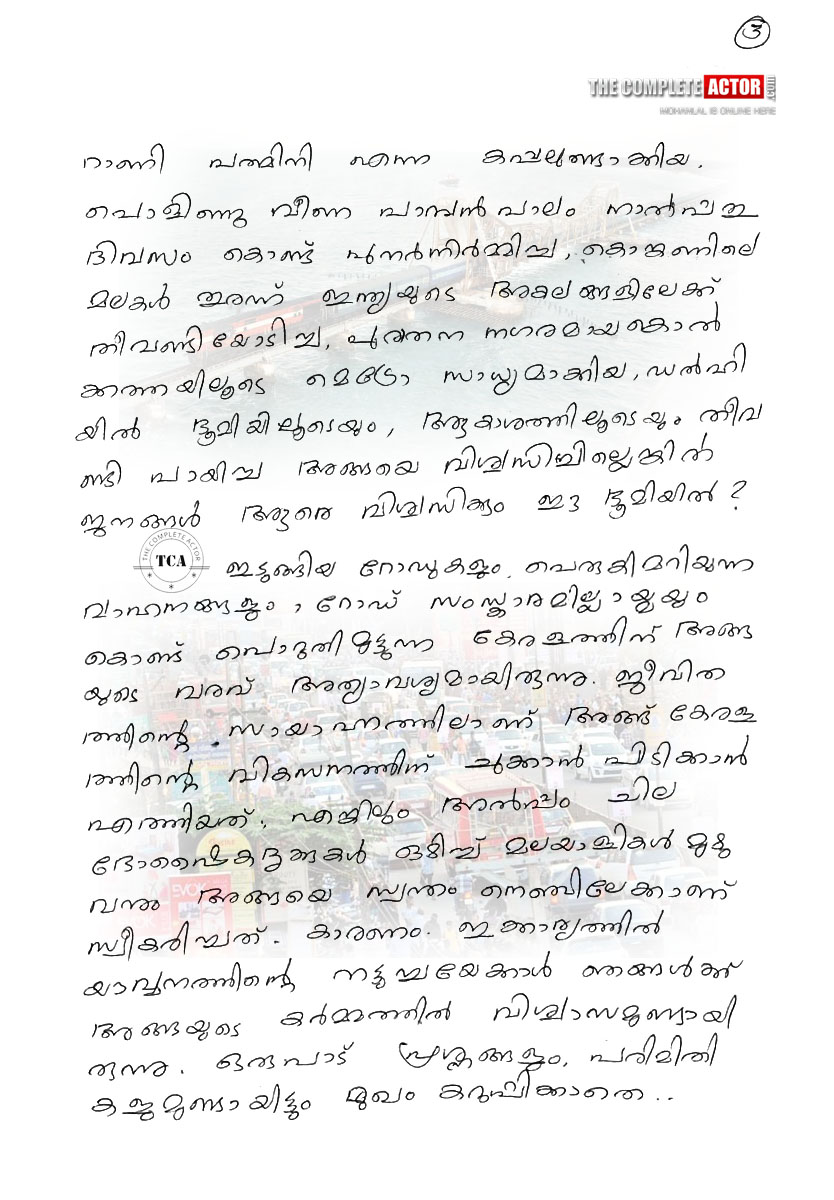 ൩
THE COMPLETE ACTOR .COM
MOHANLAL IS ONLINE HERE
റാണി പത്മിനി എന്ന കപ്പലുണ്ടാക്കിയ,
പൊളിഞ്ഞു വീണ പാമ്പൻ പാലം നാൽപ്പത്തഞ്ചു
ദിവസം കൊണ്ട് പുനർനിർമ്മിച്ച, കൊങ്കണിലെ
മലകൾ തുരന്ന് ഇന്ത്യയുടെ അകലങ്ങളിലേക്ക്
തീവണ്ടിയോടിച്ച, പുരാതന നഗരമായ കൊൽ
ക്കത്തയിലൂടെ മെട്രോ സാധ്യമാക്കിയ, ഡൽഹി
യിൽ ഭൂമിയിലൂടെയും, ആകാശത്തിലൂടെയും തീവ
ണ്ടി പായിച്ച അങ്ങയെ വിശ്വസിച്ചില്ലെങ്കിൽ
ജനങ്ങൾ ആരെ വിശ്വസിക്കും ഈ ഭൂമിയിൽ?
THE COMPLETE ACTOR TCA
ഇടുങ്ങിയ റോഡുകളും, പെരുകിമറിയുന്ന
വാഹനങ്ങളും, റോഡ് സംസ്ക്കാരമില്ലായ്മയും
കൊണ്ട് പൊറുതിമുട്ടുന്ന കേരളത്തിന് അങ്ങ
യുടെ വരവ് അത്യാവശ്യമായിരുന്നു. ജീവിത
ത്തിന്റെ സായാഹ്നത്തിലാണ് അങ്ങ് കേരള
ത്തിന്റെ വികസനത്തിന് ചുക്കാൻ പിടിക്കാൻ
എത്തിയത്. എങ്കിലും അൽപ്പം ചില
ദോഷൈകദൃക്കുകൾ ഒഴിച്ച് മലയാളികൾ മുഴു
വനും അങ്ങയെ സ്വന്തം നെഞ്ചിലേക്കാണ്
സ്വീകരിച്ചത്. കാരണം. ഇക്കാര്യത്തിൽ
യൗവ്വനത്തിന്റെ നട്ടുച്ചയേക്കാൾ ഞങ്ങൾക്ക്
അങ്ങയുടെ കർമ്മത്തിൽ വിശ്വാസമുണ്ടായി
രുന്നു. ഒരുപാട് പ്രശ്നങ്ങളും, പരിമിതി
കളുമുണ്ടായിട്ടും മുഖം കറുപ്പിക്കാതെ..